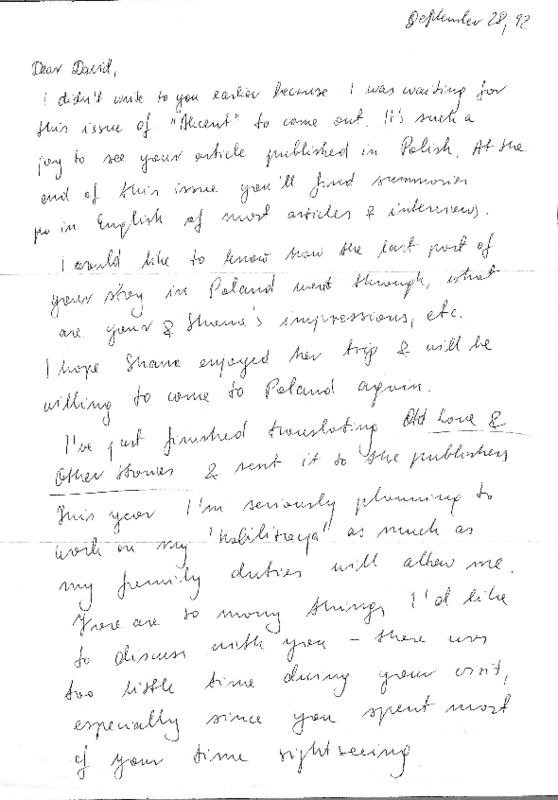 September 28, 92
Dear David,
I didn't write to you earlier because I was waiting for
this issue of "Akcent" to come out. It's such a
joy to see your article published in Polish. At the
end of this issue you'll find summaries
in English of most articles & interviews.
I would like to know how the last part of
your stay in Poland went through, what
are your & Shana's impressions, etc.
I hope Shana enjoyed her trip & will be
willing to come to Poland again.
I've just finished translating Old Love &
Other Stories & sent it to the publishers
This year I'm seriously planning to
work on my "habilitacja" as much as
my family duties will allow me.
There are so many things I'd like
to discuss with you – there was
too little time during your visit,
especially since you spent most
of your time sightseeing